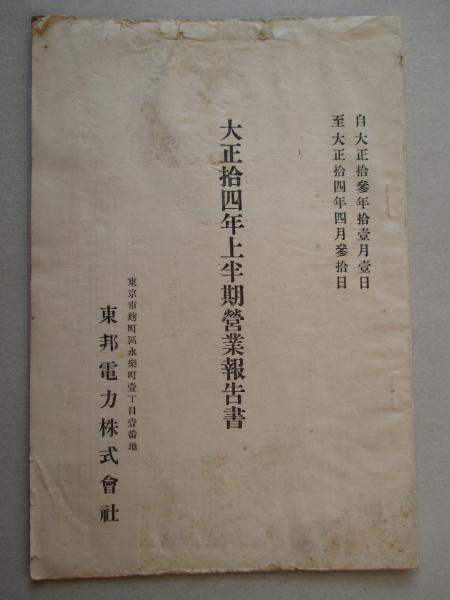 自大正拾參年拾壹月壹日
至大正拾四年四月參拾日
大正拾四年上半期營業報告書
東京市麹町區永樂町壹丁目壹番地
東邦電力株式會社